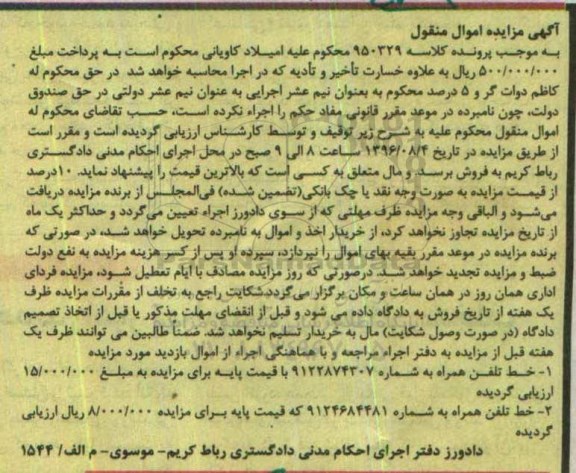 آگهی مزایده اموال منقول
به موجب پرونده کلاسه ۹۵۰۳۲۹ محکوم علیه امیلاد کاویانی محکوم است به پرداخت مبلغ
۵۰۰/۰۰۰/۰۰۰ ریال به علاوه خسارت تأخیر و تأدیه که در اجرا محاسبه خواهد شد در حق محکوم له
کاظم دوات گر و ۵ درصد محکوم به بعنوان نیم عشر اجرایی به عنوان نیم عشر دولتی در حق صندوق
دولت، چون نامبرده در موعد مقرر قانونی مفاد حکم را اجراء نکرده است، حسب تقاضای محکوم له
اموال منقول محکوم علیه به شرح زیر توقیف و توسط کارشناس ارزیابی گردیده است و مقرر است
از طریق مزایده در تاریخ ۱۳۹۶/۰۸/۴ ساعت ۸ الی ۹ صبح در محل اجرای احکام مدنی دادگستری
رباط کریم به فروش برسد. و مال متعلق به کسی است که بالاترین قیمت را پیشنهاد نماید. ۱۰درصد
از قیمت مزایده به صورت وجه نقد یا چک بانکی(تضمین شده) فی‌المجلس از برنده مزایده دریافت
می‌شود و الباقی وجه مزایده ظرف مهلتی که از سوی دادورز اجراء تعیین می‌گردد و حداکثر یک ماه
از تاریخ مزایده تجاوز نخواهد کرد، از خریدار اخذ و اموال به نامبرده تحویل خواهد شد، در صورتی که
برنده مزایده در موعد مقرر بقیه بهای اموال را نپردازد، سپرده او پس از کسر هزینه مزایده به نفع دولت
ضبط و مزایده تجدید خواهد شد. درصورتی که روز مزایده مصادف با ایام تعطیل شود، مزایده فردای
اداری همان روز در همان ساعت و مکان برگزار می‌گردد.شکایت راجع به تخلف از مقررات مزایده ظرف
یک هفته از تاریخ فروش به دادگاه داده می شود و قبل از انقضای مهلت مذکور یا قبل از اتخاذ تصمیم
دادگاه (در صورت وصول شکایت) مال به خریدار تسلیم نخواهد شد. ضمناً طالبین می توانند ظرف یک
هفته قبل از مزایده به دفتر اجراء مراجعه و با هماهنگی اجراء از اموال بازدید مورد مزایده
۱- خط تلفن همراه به شماره ۹۱۲۲۸۷۴۳۰۷ با قیمت پایه برای مزایده به مبلغ ۱۵/۰۰۰/۰۰۰
ارزیابی گردیده
۲- خط تلفن همراه به شماره ۹۱۲۴۶۸۴۴۸۱ که قیمت پایه برای مزایده ۸/۰۰۰/۰۰۰ ریال ارزیابی
گردیده
دادورز دفتر اجرای احکام مدنی دادگستری رباط کریم- موسوی- م الف/ ۱۵۴۴